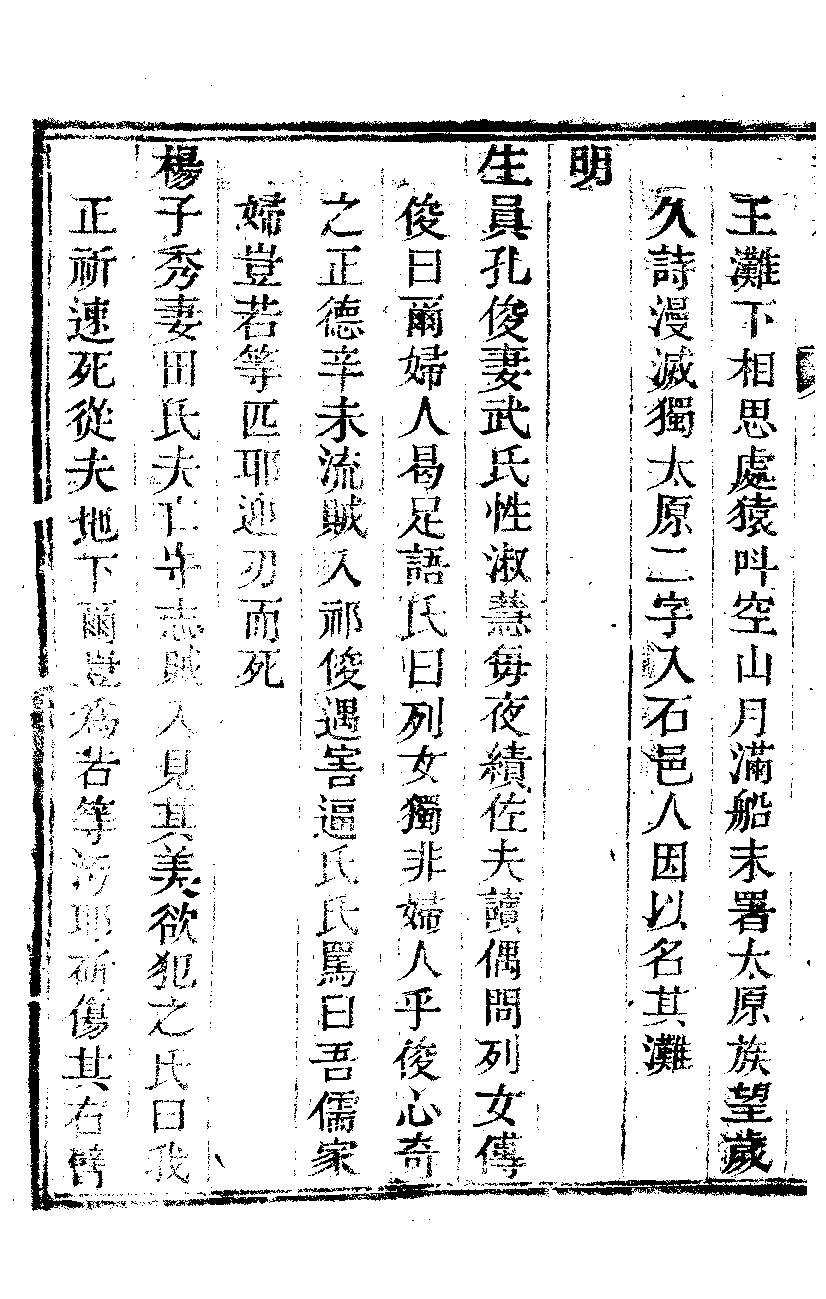 王灘下相思處猿叫空山月滿船末署太原族望歲
久詩漫滅獨太原二字入石邑人因以名其灘
明
生員孔俊妻武氏性淑慧每夜績佐夫讀偶問列女傳
俊曰爾婦人曷足語氏曰列女獨非婦人乎俊心奇
之正德辛未流賊入祁俊遇害逼氏氏罵曰吾儒家
婦豈若等匹耶迎刃而死
楊子秀妻田氏夫亡守志賊入見其美欲犯之氏曰我
正祈速死從夫地下爾豈為若等污耶斫傷其右臂